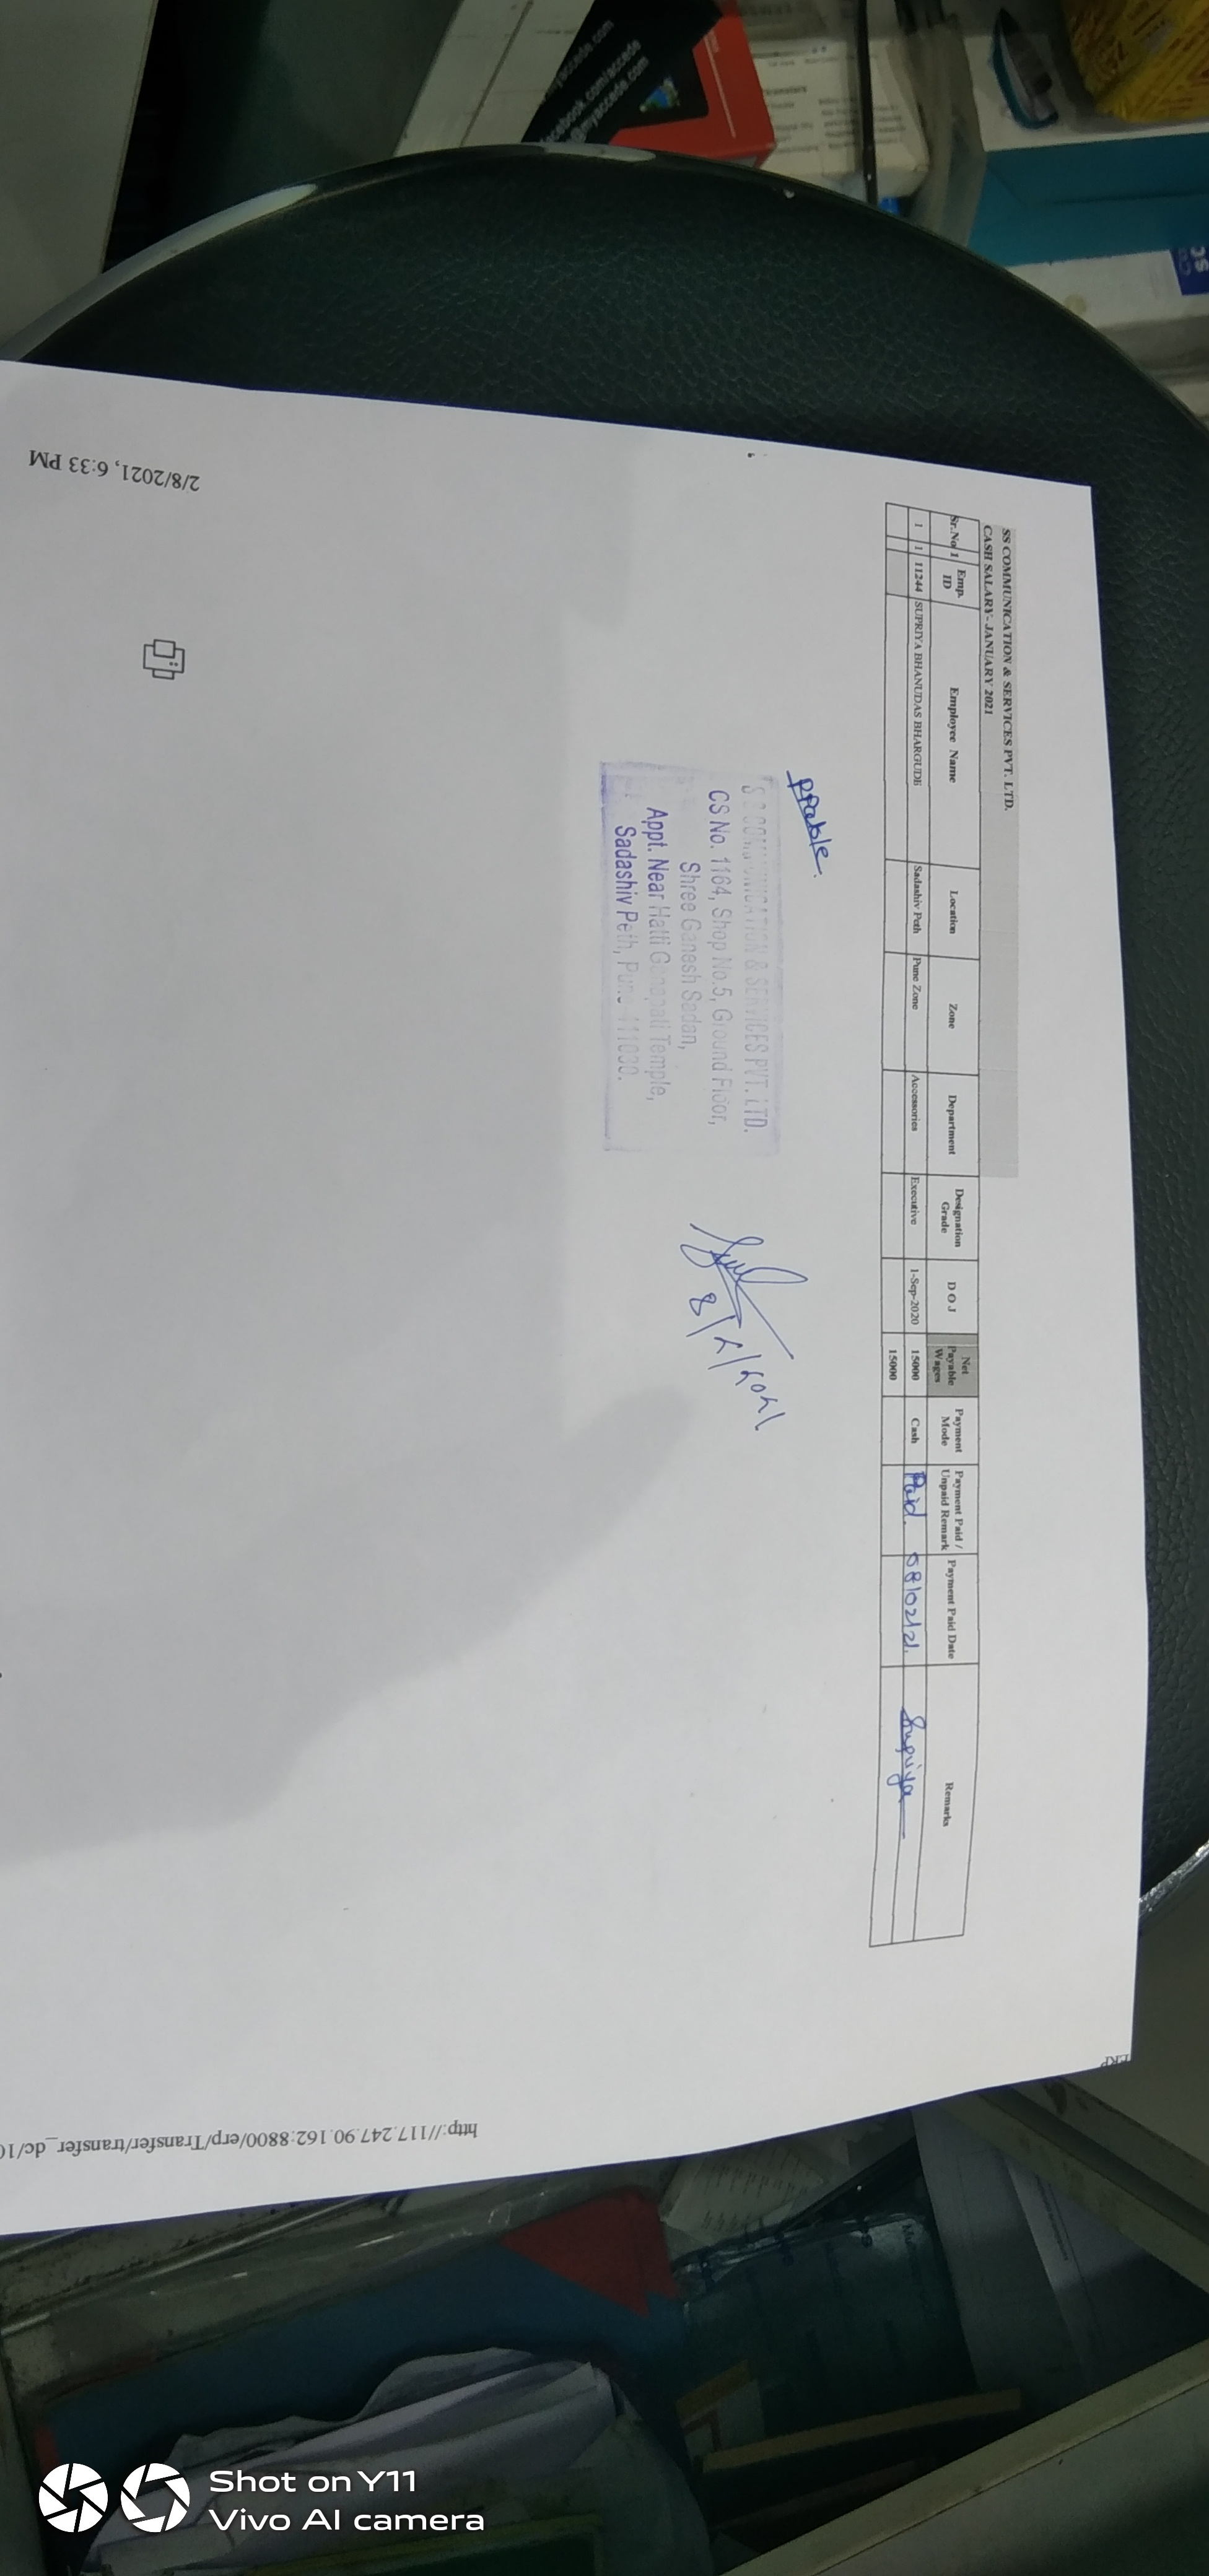 SS COMMUNICATION & SERVICES PVT. LTD.
CASH SALARY- JANUARY 2021
Sr.No 1 Emp. ID Employee Name Location Zone Department Designation Grade D O J Net Payable Wages Payment Mode Payment Paid / Unpaid Remark Payment Paid Date Remarks
1 1 11244 SUPRIYA BHANUDAS BHARGUDE Sadashiv Peth Pune Zone Accessories Executive 1-Sep-2020 15000 Cash Paid. 08/02/21. Supriya
15000
S S COMMUNICATION & SERVICES PVT. LTD.
CS No. 1164, Shop No.5, Ground Floor,
Shree Ganesh Sadan,
Appt. Near Hatti Ganapati Temple,
Sadashiv Peth, Pune 411030.
8/2/2021
ERP
http://117.247.90.162:8800/erp/Transfer/transfer_dc/10
2/8/2021, 6:33 PM
facebook.com/accede
@myaccede.com
Shot on Y11
Vivo AI camera